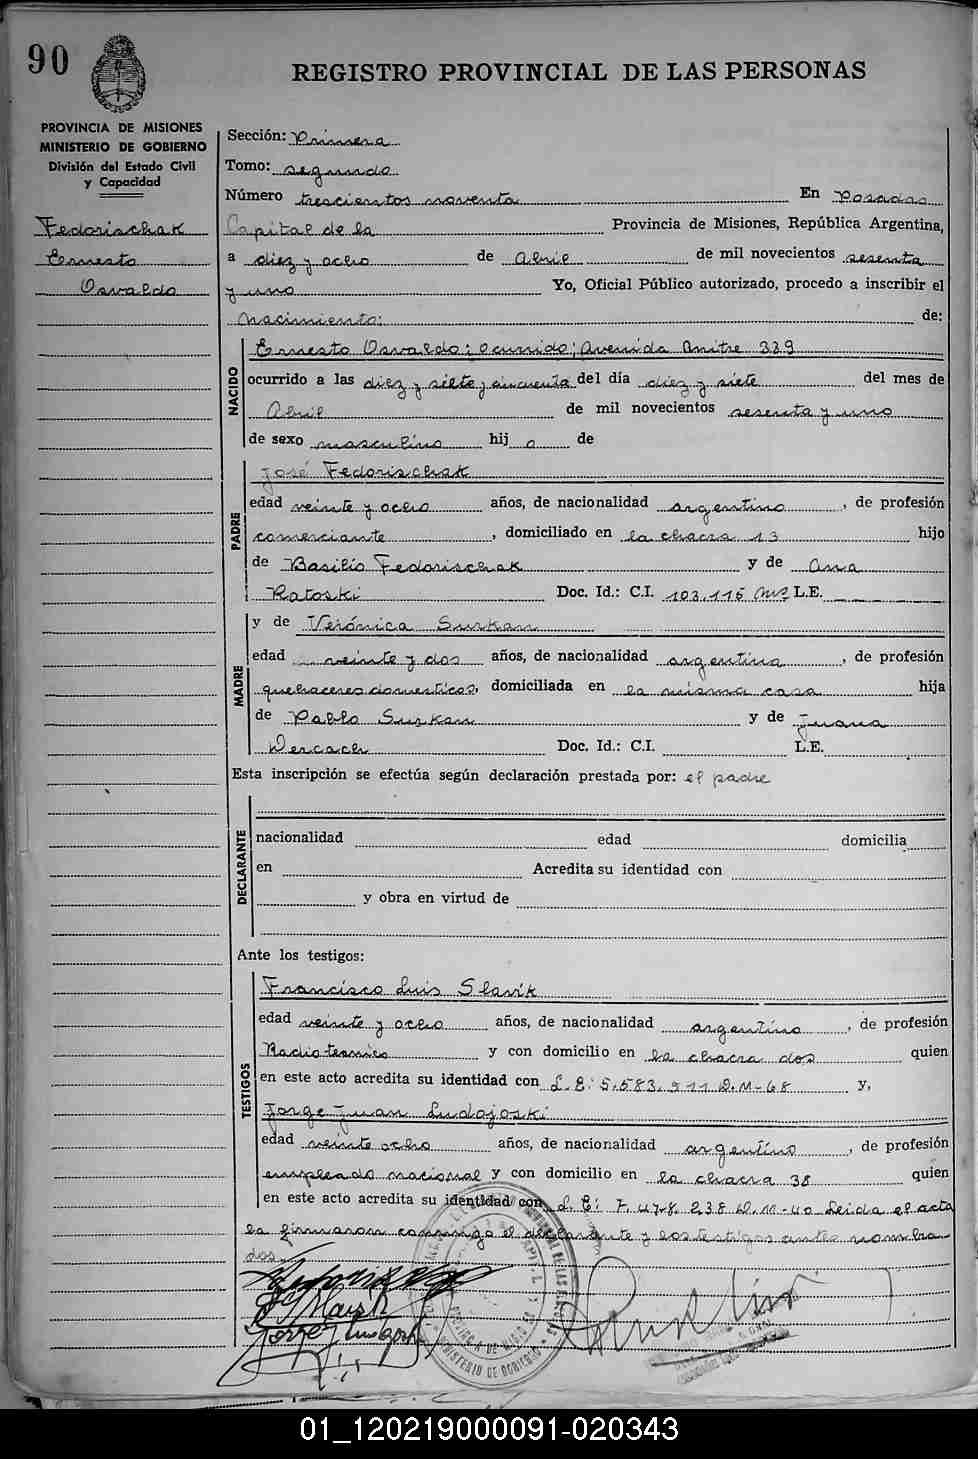 90
REGISTRO PROVINCIAL DE LAS PERSONAS
PROVINCIA DE MISIONES
MINISTERIO DE GOBIERNO
División del Estado Civil
y Capacidad
Fedorischak
Ernesto
Osvaldo
Sección: Primera
Tomo: segundo
Número trescientos noventa En Posadas
Capital de la Provincia de Misiones, República Argentina,
a diez y ocho de Abril de mil novecientos sesenta
y uno Yo, Oficial Público autorizado, procedo a inscribir el
nacimiento: de:
NACIDO
Ernesto Osvaldo; ocurrido; Avenida Mitre 339
ocurrido a las diez y siete y cincuenta del día diez y siete del mes de
Abril de mil novecientos sesenta y uno
de sexo masculino hij o de
PADRE
José Fedorischak
edad veinte y ocho años, de nacionalidad argentino, de profesión
comerciante, domiciliado en la chacra 13 hijo
de Basilio Fedorischak y de Ana
Ratoski Doc. Id.: C.I. 103.115 Mnes L.E.
MADRE
y de Verónica Surkan
edad veinte y dos años, de nacionalidad argentina, de profesión
quehaceres domesticos, domiciliada en la misma casa hija
de Pablo Surkan y de Juana
Dercach Doc. Id.: C.I. L.E.
Esta inscripción se efectúa según declaración prestada por: el padre
DECLARANTE
nacionalidad edad domicilia
en Acredita su identidad con
y obra en virtud de
Ante los testigos:
TESTIGOS
Francisco Luis Slavik
edad veinte y ocho años, de nacionalidad argentino, de profesión
Radio-tecnico y con domicilio en la chacra dos quien
en este acto acredita su identidad con L.E: 5.583.911 D.M-68 y,
Jorge Juan Ludojoski
edad veinte ocho años, de nacionalidad argentino, de profesión
empleado nacional y con domicilio en la chacra 38 quien
en este acto acredita su identidad con L.E: 7.478.238 D.M-40 Leida el acta
la firmaron conmigo el declarante y los testigos antes nombra-
dos
MINISTERIO DE GOBIERNO
01_120219000091-020343